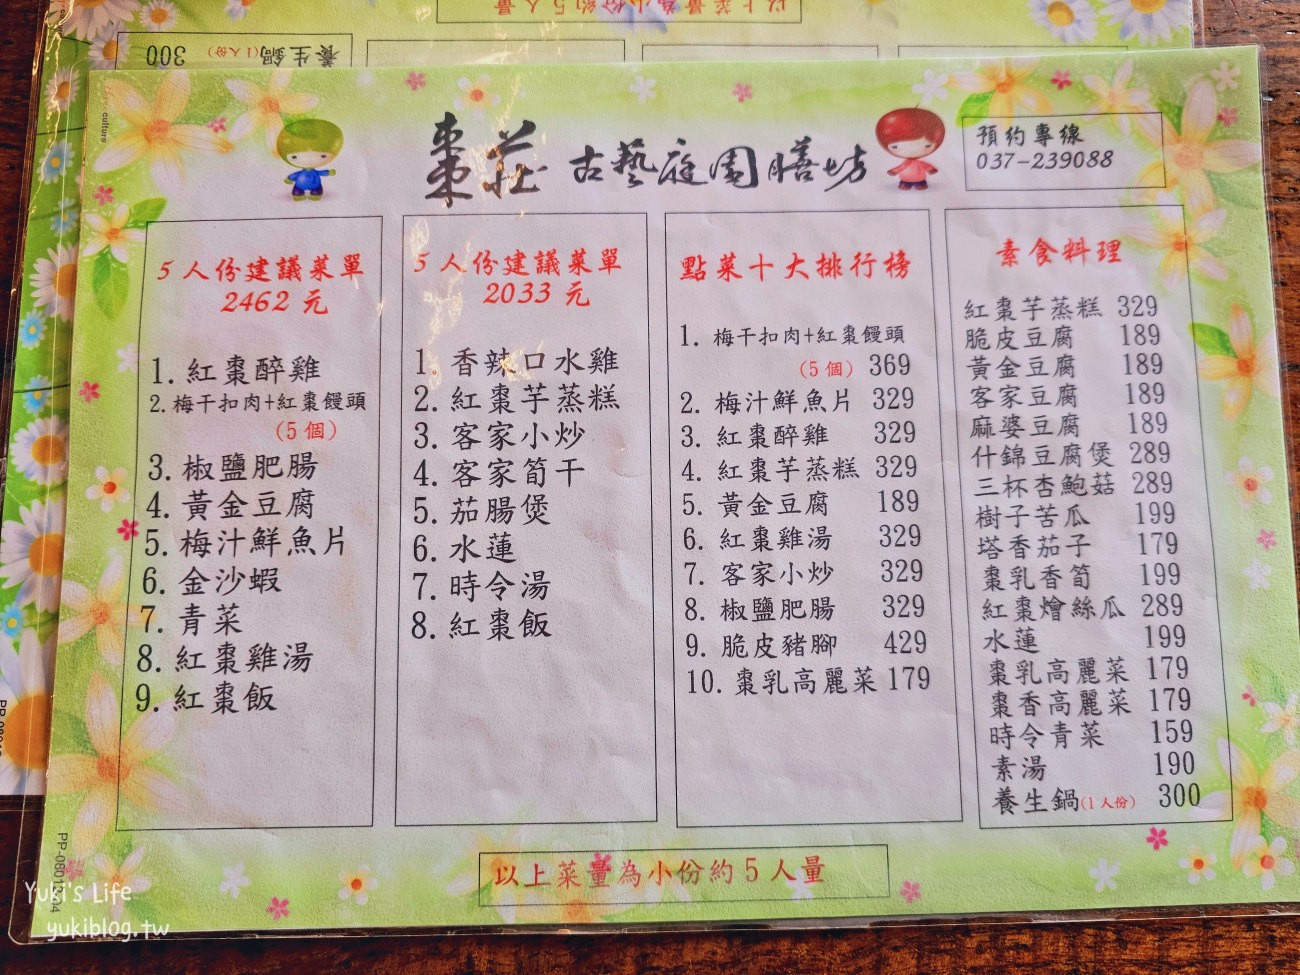 以上菜量為小份約5人量
養生鍋(1人份) 300
culture
棗莊 古藝庭園膳坊
預約專線
037-239088
5人份建議菜單
2462元
1. 紅棗醉雞
2. 梅干扣肉+紅棗饅頭
(5個)
3. 椒鹽肥腸
4. 黃金豆腐
5. 梅汁鮮魚片
6. 金沙蝦
7. 青菜
8. 紅棗雞湯
9. 紅棗飯
5人份建議菜單
2033元
1. 香辣口水雞
2. 紅棗芋蒸糕
3. 客家小炒
4. 客家筍干
5. 茄腸煲
6. 水蓮
7. 時令湯
8. 紅棗飯
點菜十大排行榜
1. 梅干扣肉+紅棗饅頭
(5個) 369
2. 梅汁鮮魚片 329
3. 紅棗醉雞 329
4. 紅棗芋蒸糕 329
5. 黃金豆腐 189
6. 紅棗雞湯 329
7. 客家小炒 329
8. 椒鹽肥腸 329
9. 脆皮豬腳 429
10. 棗乳高麗菜 179
素食料理
紅棗芋蒸糕 329
脆皮豆腐 189
黃金豆腐 189
客家豆腐 189
麻婆豆腐 189
什錦豆腐煲 289
三杯杏鮑菇 289
樹子苦瓜 199
塔香茄子 179
棗乳香筍 199
紅棗燴絲瓜 289
水蓮 199
棗乳高麗菜 179
棗香高麗菜 179
時令青菜 159
素湯 190
養生鍋(1人份) 300
以上菜量為小份約5人量
Yuki's Life
yukiblog.tw